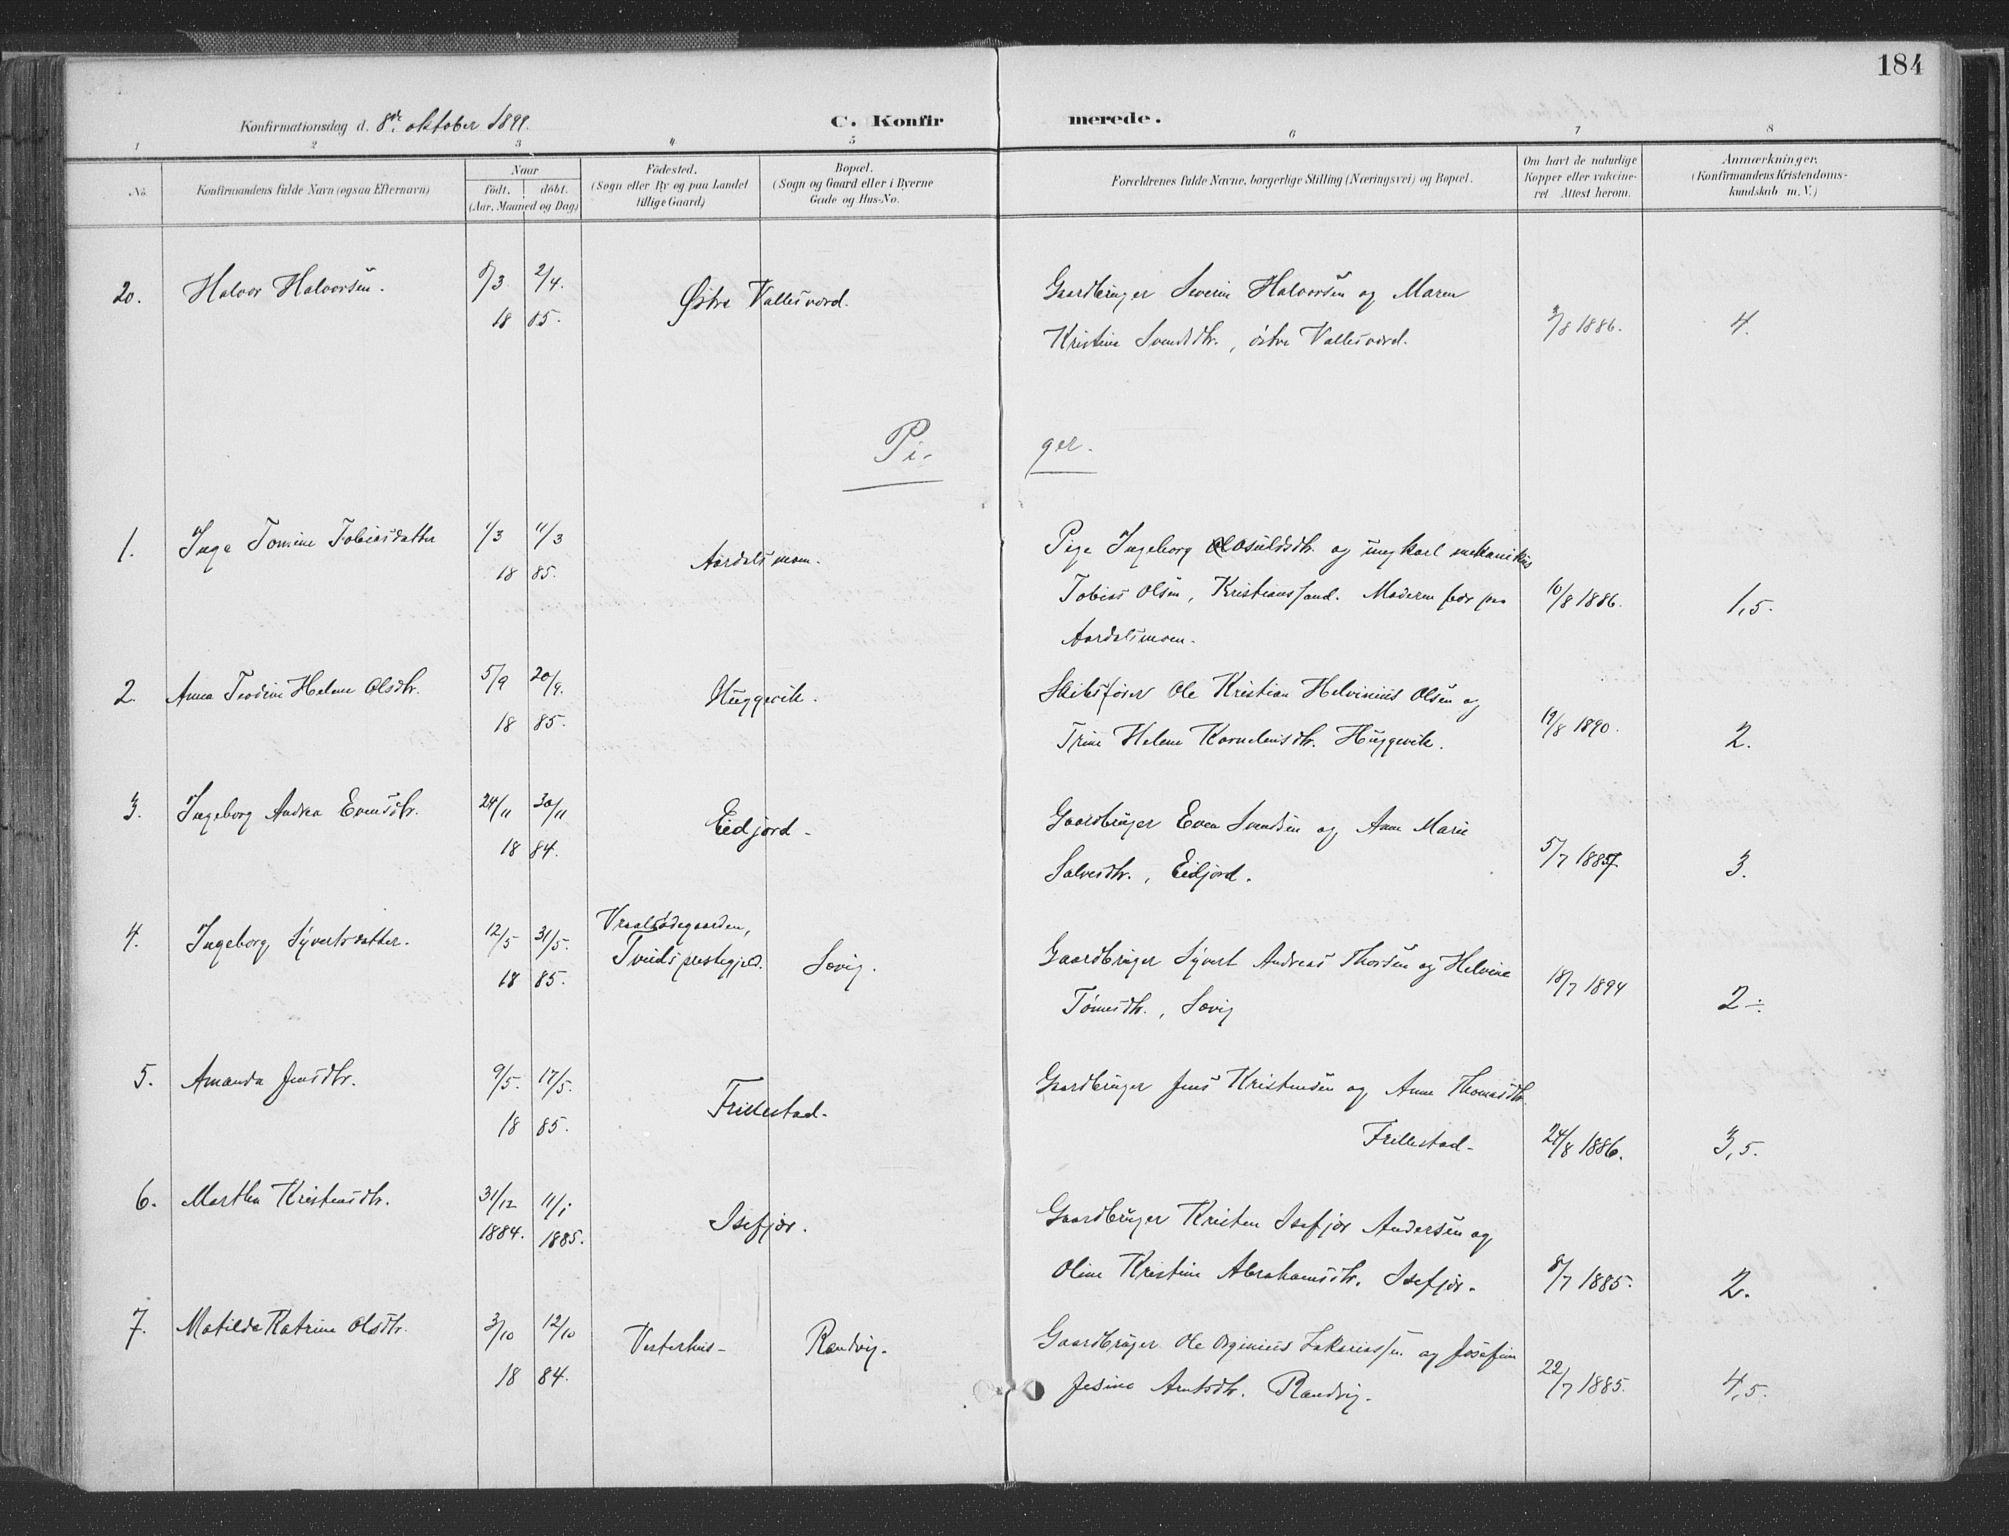 184
Konfirmationsdag d. 8de oktober 1899.
C. Konfirmerede.
1 2 3 4 5 6 7 8
No.
Konfirmandens fulde Navn (ogsaa Efternavn)
Naar
födt. döbt.
(Aar, Maaned og Dag)
Födested.
(Sogn eller By og paa Landet
tillige Gaard)
Bopæl.
(Sogn og Gaard eller i Byerne
Gade og Hus-No.
Forældrenes fulde Navne, borgerlige Stilling (Næringsvei) og Bopæl.
Om havt de naturlige
Kopper eller vakcine-
ret Attest herom.
Anmærkninger.
(Konfirmandens Kristendoms-
kundskab m. V.)
20. Halvor Halvorsen. 8/3 2/4. Østre Vallesverd. Gaardbruger Severin Halvorsen og Maren
18 85. Kristine Svendsdtr., østre Vallesverd. 3/8 1886. 4.
Piger.
1. Inga Tomine Tobiasdatter 1/3 11/3 Aardalsmoen. Pige Ingeborg Osuldsdtr. og ungkarl mekanikus
18 85. Tobias Olsen, Kristianssand. Moderen bor paa 10/8 1886. 1,5.
Aardalsmoen.
2. Anna Teodine Helene Olsdtr. 5/9 20/9. Huggevik. Skibsfører Ole Kristian Helvinius Olsen og
18 85. Trine Helene Korneliusdtr. Huggevik. 19/8 1890. 2.
3. Ingeborg Andrea Evensdtr. 24/11 30/11 Eidjord. Gaardbruger Even Svendsen og Anne Marie
18 84. Salvesdtr., Eidjord. 5/7 1887. 3.
4. Ingeborg Syvertsdatter. 12/5 31/5. Vraalsødegaarden,
Tveids prestegjeld. Søvig. Gaardbruger Syvert Andreas Thorsen og Helvine
18 85. Tomesdtr., Søvig 18/7 1894 2÷
5. Amanda Jensdtr. 9/5. 17/5. Frillestad. Gaardbruger Jens Kristensen og Anne Thomasdtr.
18 85. Frillestad. 24/8 1886. 3,5.
6. Martha Kristensdtr. 31/12 11/1 Isefjær. Gaardbruger Kristen Isefjær Andersen og
1884. 1885. Oline Kristine Abrahamsdtr. Isefjær. 8/7 1885. 2.
7. Matilde Katrine Olsdtr. 3/10 12/10 Vesterhus. Randvig. Gaardbruger Ole Orginius Zakariassen og Josefine
18 84. Jesine Arntsdtr. Randvig. 22/7 1885. 4,5.